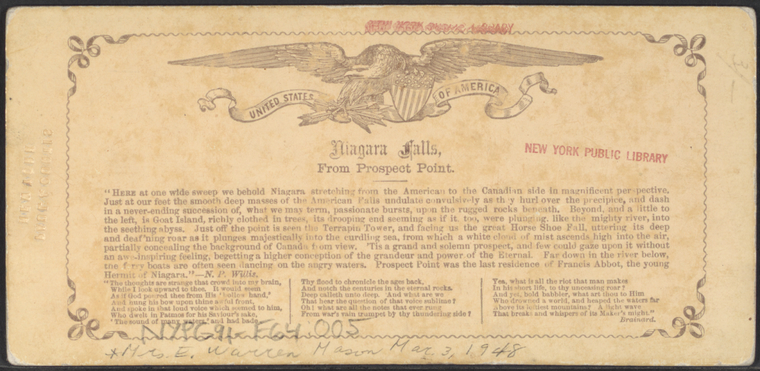 NEW YORK PUBLIC LIBRARY
UNITED STATES OF AMERICA
Niagara Falls,
From Prospect Point.
NEW YORK PUBLIC LIBRARY
"HERE at one wide sweep we behold Niagara stretching from the American to the Canadian side in magnificent perspective.
Just at our feet the smooth deep masses of the American Falls undulate convulsively as they hurl over the precipice, and dash
in a never-ending succession of, what we may term, passionate bursts, upon the rugged rocks beneath. Beyond, and a little to
the left, is Goat Island, richly clothed in trees, its drooping end seeming as if it, too, were plunging, like the mighty river, into
the seething abyss. Just off the point is seen the Terrapin Tower, and facing us the great Horse Shoe Fall, uttering its deep
and deaf'ning roar as it plunges majestically into the curdling sea, from which a white cloud of mist ascends high into the air,
partially concealing the background of Canada from view. 'Tis a grand and solemn prospect, and few could gaze upon it without
an awe-inspiring feeling, begetting a higher conception of the grandeur and power of the Eternal. Far down in the river below,
the ferry boats are often seen dancing on the angry waters. Prospect Point was the last residence of Francis Abbot, the young
Hermit of Niagara."—N. P. Willis.
"The thoughts are strange that crowd into my brain,
While I look upward to thee. It would seem
As if God poured thee from His "hollow hand,"
And hung his bow upon thine awful front,
And spoke in that loud voice which seemed to him,
Who dwelt in Patmos for his Saviour's sake,
"The sound of many waters," and had bade
Thy flood to chronicle the ages back,
And notch the centuries in the eternal rocks.
Deep calleth unto deep. And what are we
That hear the question of that voice sublime?
Oh! what are all the notes that ever rung
From war's vain trumpet by thy thundering side?
Yea, what is all the riot that man makes
In his short life, to thy unceasing roar?
And yet, bold babbler, what art thou to Him
Who drowned a world, and heaped the waters far
Above its loftiest mountains? A light wave
That breaks and whispers of its Maker's might."
Brainard.
N78G94.F64.005
*Mrs E. Warren Mason Mar 3, 1948